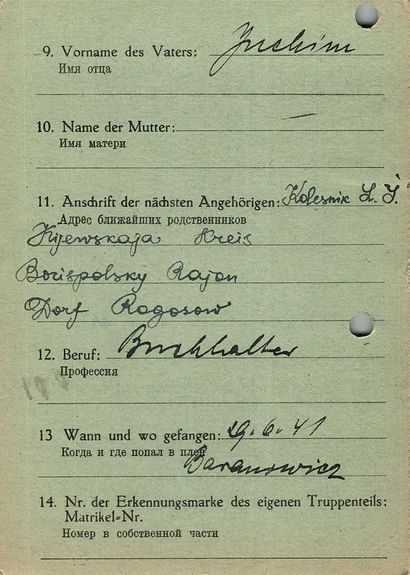 9. Vorname des Vaters: Juchim
Имя отца
10. Name der Mutter: —
Имя матери
11. Anschrift der nächsten Angehörigen: Kolesnik
Адрес ближайших родственников
Kijewskaja Kreis
Borispolsky Rajon
Dorf Rogosow
12. Beruf: Buchhalter
Профессия
13 Wann und wo gefangen: 29.6.41
Когда и где попал в плен
Baranowicz
14. Nr. der Erkennungsmarke des eigenen Truppenteils:
Matrikel-Nr.
Номер в собственной части